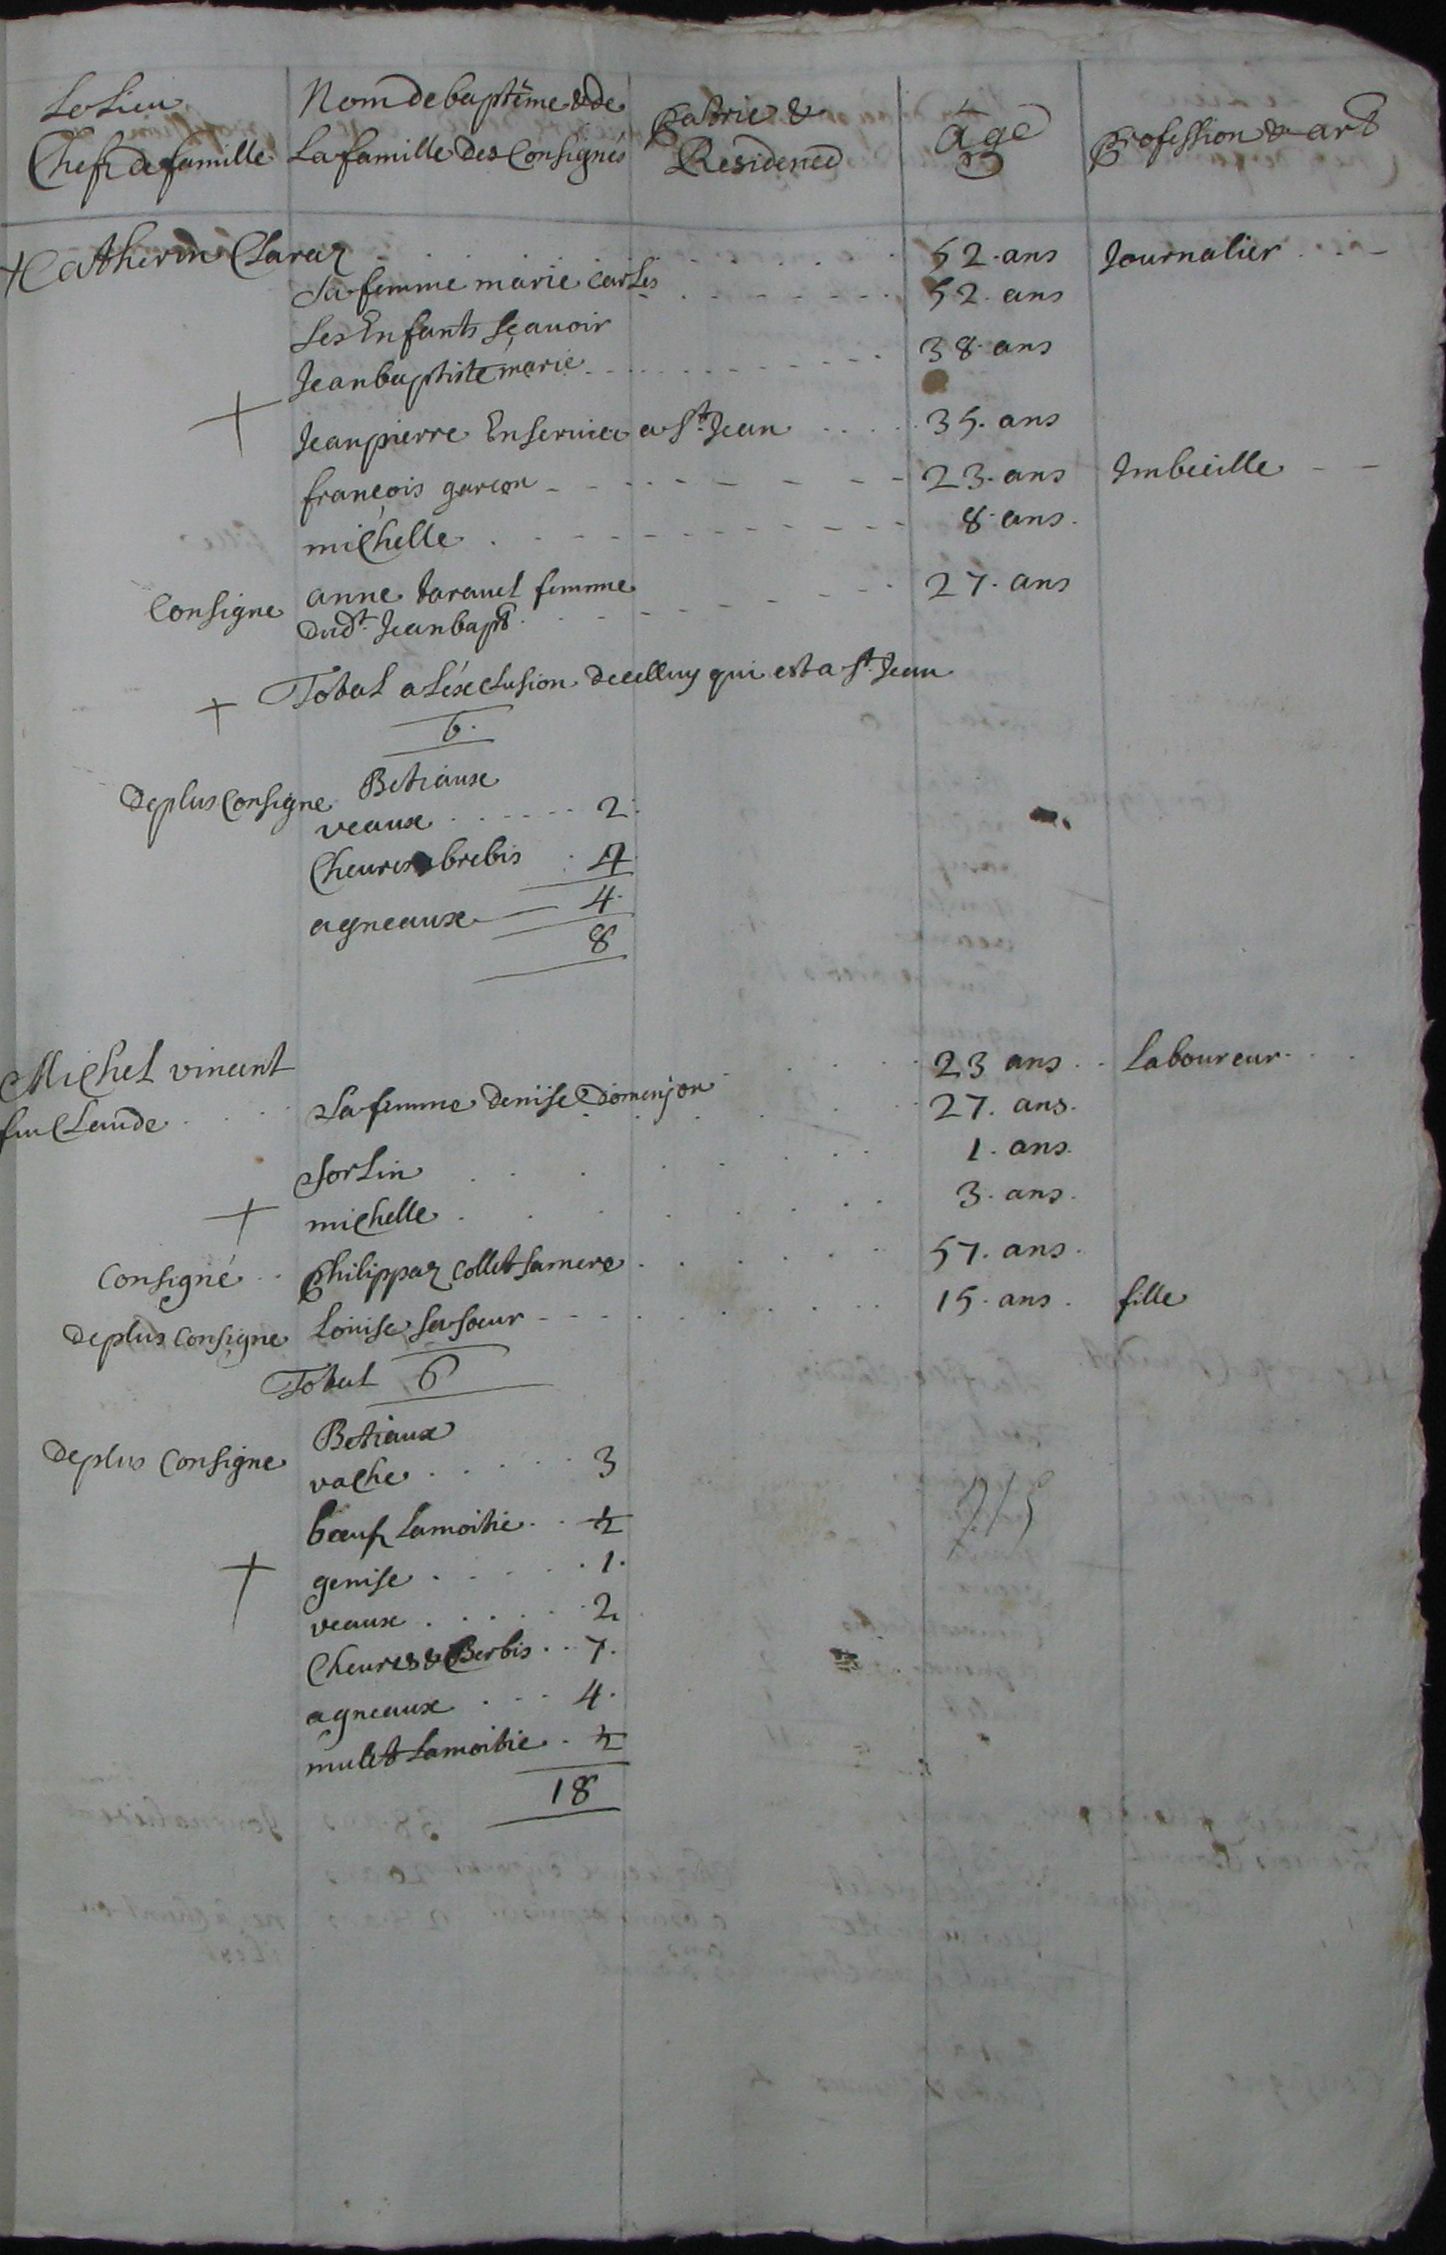 Le Lieu Nom de baptême & de patrie & âge profession & art
Chefs de famille La famille Des Consignés Residence
+ Catherin Claraz 52. ans Journalier
Sa femme marie Carles 52. ans
Les Enfants Sçavoir
Jean baptiste marie 38. ans
+ Jean pierre En Service a St. Jean 35. ans
françois garçon 23. ans Imbecille
michelle 8. ans.
Consigne anne taravel femme 27. ans
dudt. Jean bapte.
+ Total a L'éxclusion de celluy qui est a St. Jean
6.
De plus Consigne Betiaux
veaux 2.
Cheures brebis
agneaux 4.
8
Michel vincent 23 ans Laboureur
feu Claude Sa femme Denise Domenjon 27. ans.
Sorlin 1. ans.
+ michelle 3. ans.
Consigné Philippaz Collet Sa mere 57. ans.
De plus Consigne Louise Sa Soeur 15. ans. fille
Total 6
De plus Consigne Betiaux
vache 3
bœuf La moitie ½
+ genise 1.
veaux 2
Cheures & Berbis 7.
agneaux 4.
mulet La moitie ½
18